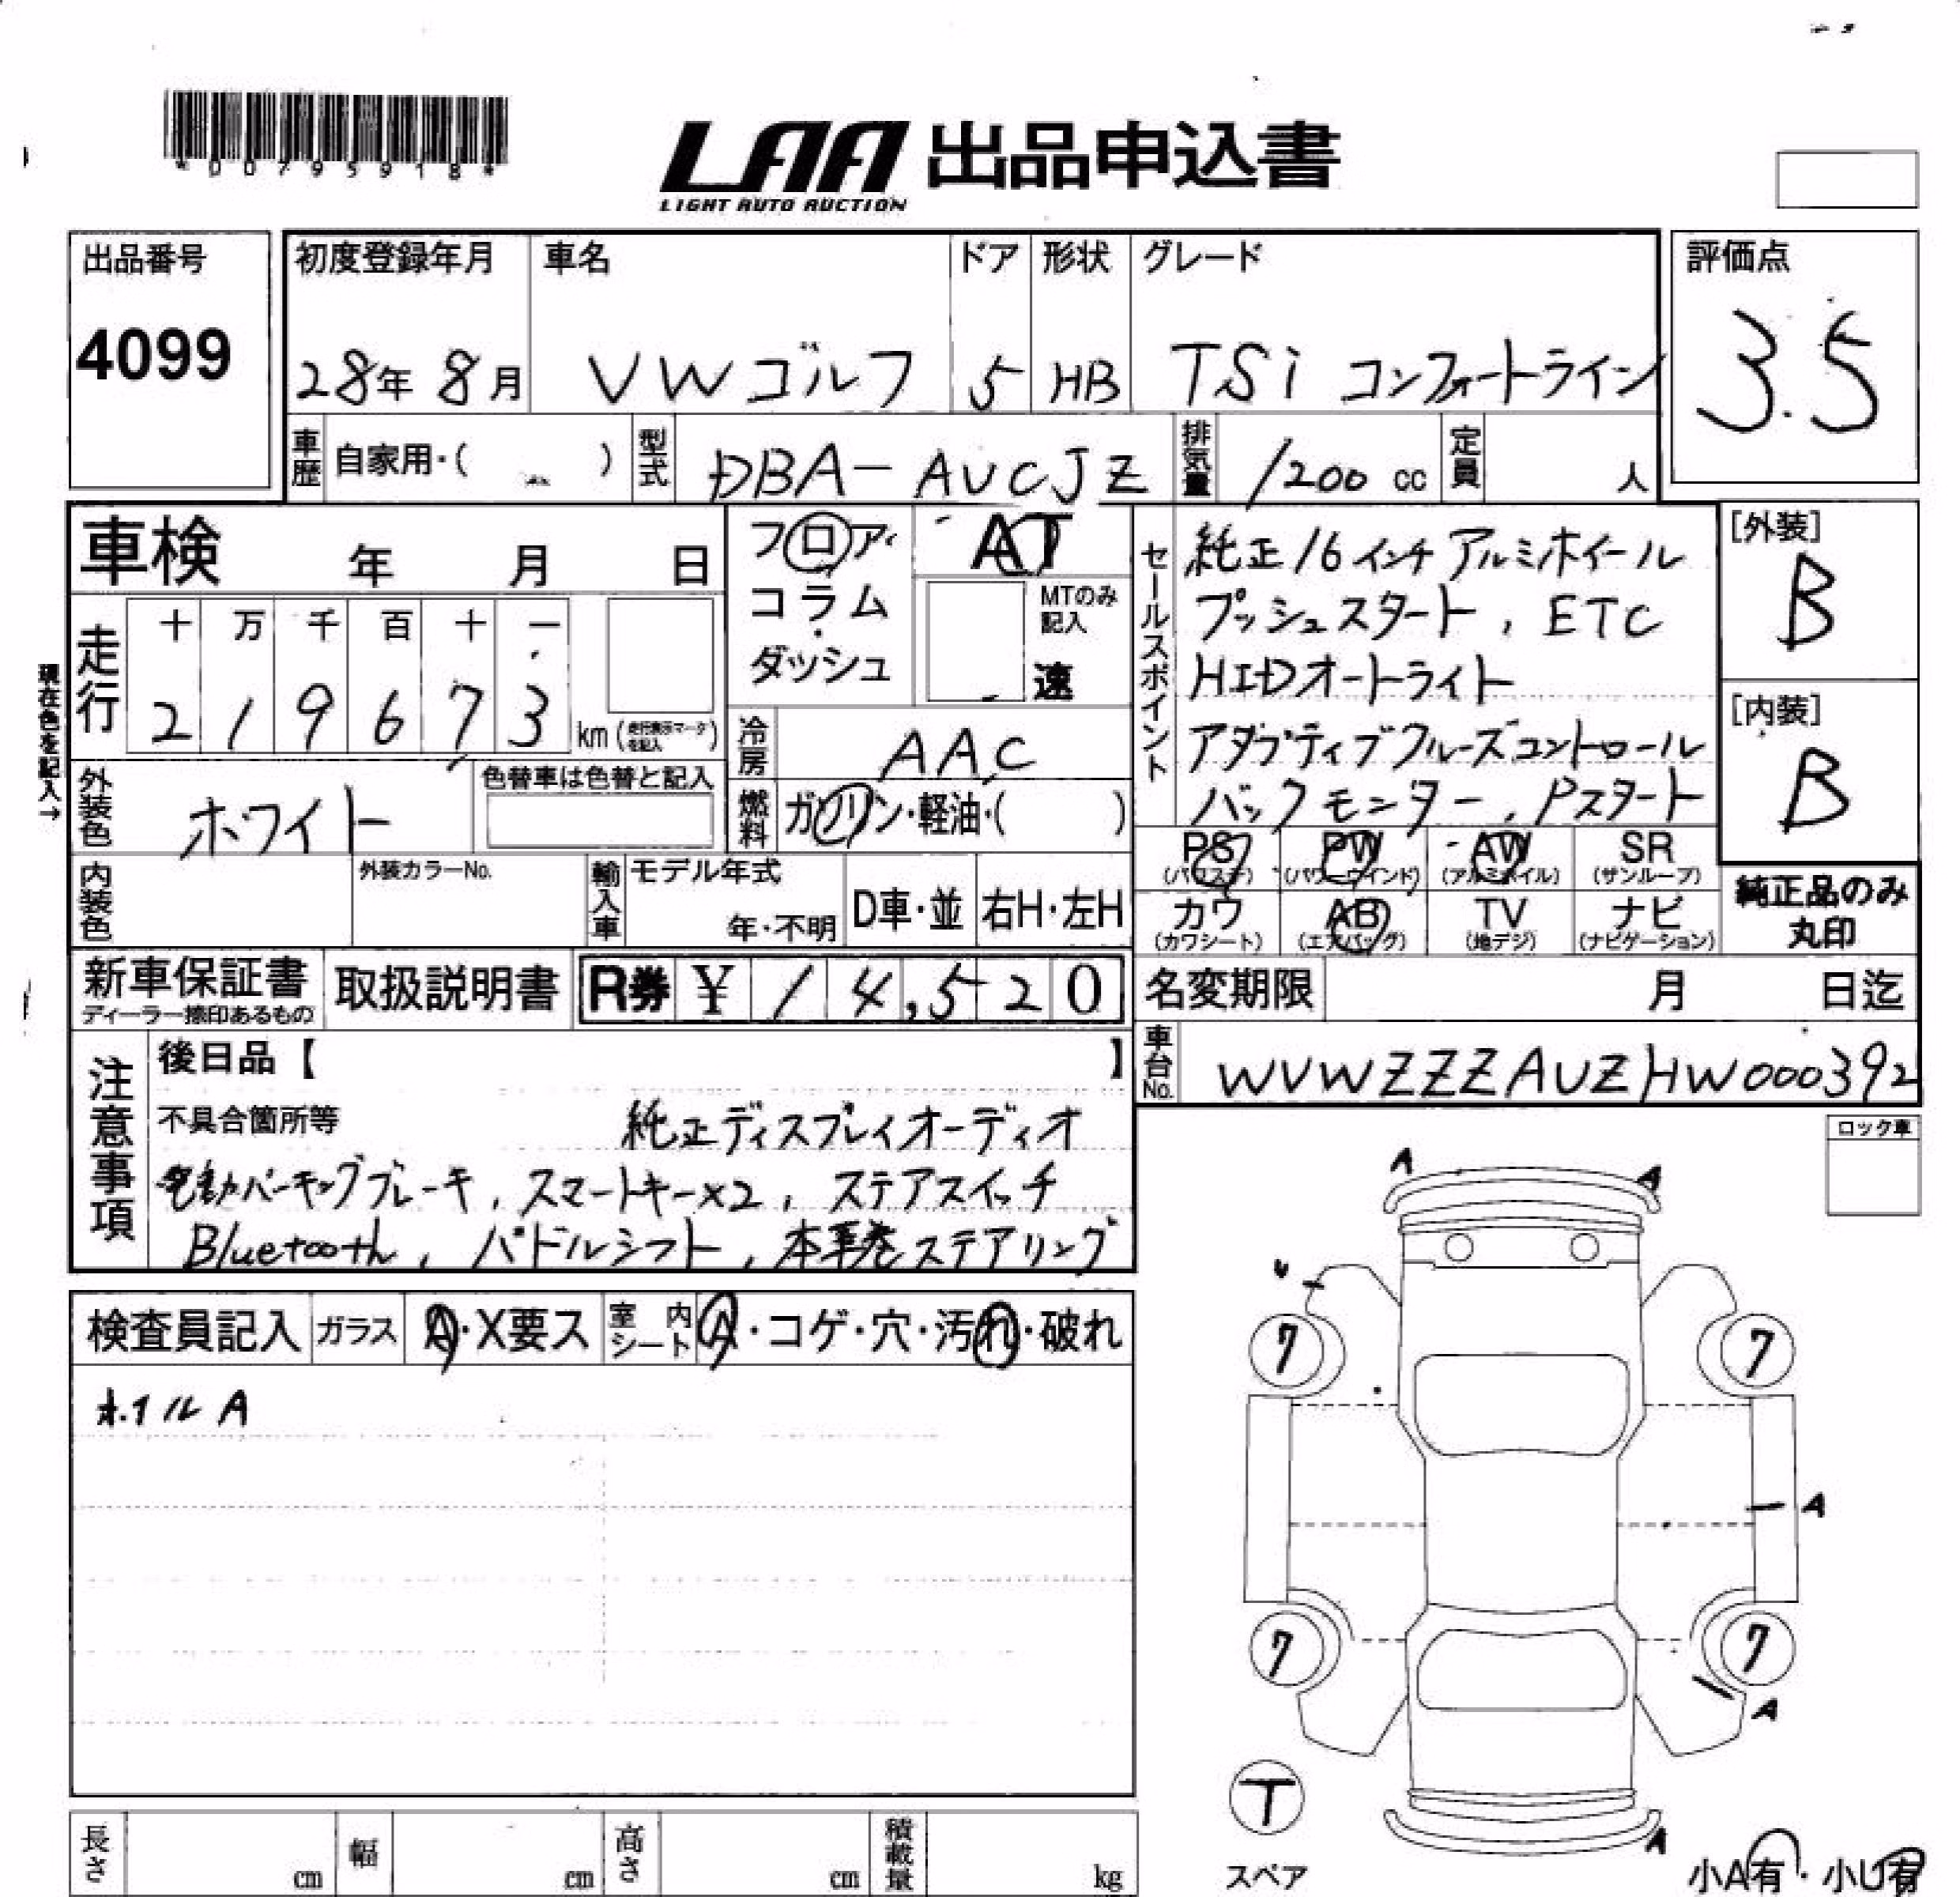 *00795918*
LAA 出品申込書
LIGHT AUTO AUCTION
出品番号
4099
初度登録年月 車名 ドア 形状 グレード
28年 8月 VWゴルフ 5 HB TSi コンフォートライン
評価点
3.5
車歴 自家用・( ) 型式 DBA-AUCJZ 排気量 1200 cc 定員 人
車検 年 月 日
フロア・
コラム
・
ダッシュ
AT
MTのみ
記入
速
走行 十 万 千 百 十 一
2 1 9 6 7 3 km (走行表示マークを記入)
現在色を記入→
外装色 ホワイト 色替車は色替と記入
冷房 AAC
燃料 ガソリン・軽油・( )
セールスポイント
純正16インチアルミホイール
プッシュスタート, ETC
HIDオートライト
アダプティブクルーズコントロール
バックモニター, Pスタート
[外装]
B
[内装]
B
内装色 外装カラーNo. 輸入車 モデル年式 年・不明 D車・並 右H・左H
PS PW AW SR
(パワステ) (パワーウインド) (アルミホイル) (サンルーフ)
カワ AB TV ナビ
(カワシート) (エアバッグ) (地デジ) (ナビゲーション)
純正品のみ
丸印
新車保証書 取扱説明書 R券 ¥ 14,520
ディーラー捺印あるもの
名変期限 月 日迄
車台No. WVWZZZAUZHW000392
注意事項
後日品【 】
不具合箇所等 純正ディスプレイオーディオ
電動パーキングブレーキ, スマートキー×2, ステアスイッチ
Bluetooth, パドルシフト, 本革巻ステアリング
ロック車
検査員記入 ガラス A・X要ス 室内シート A・コゲ・穴・汚れ・破れ
ホイルA
A
A
U
7
7
A
7
7
A
T
スペア
A
小A有・小U有
長さ cm 幅 cm 高さ cm 積載量 kg